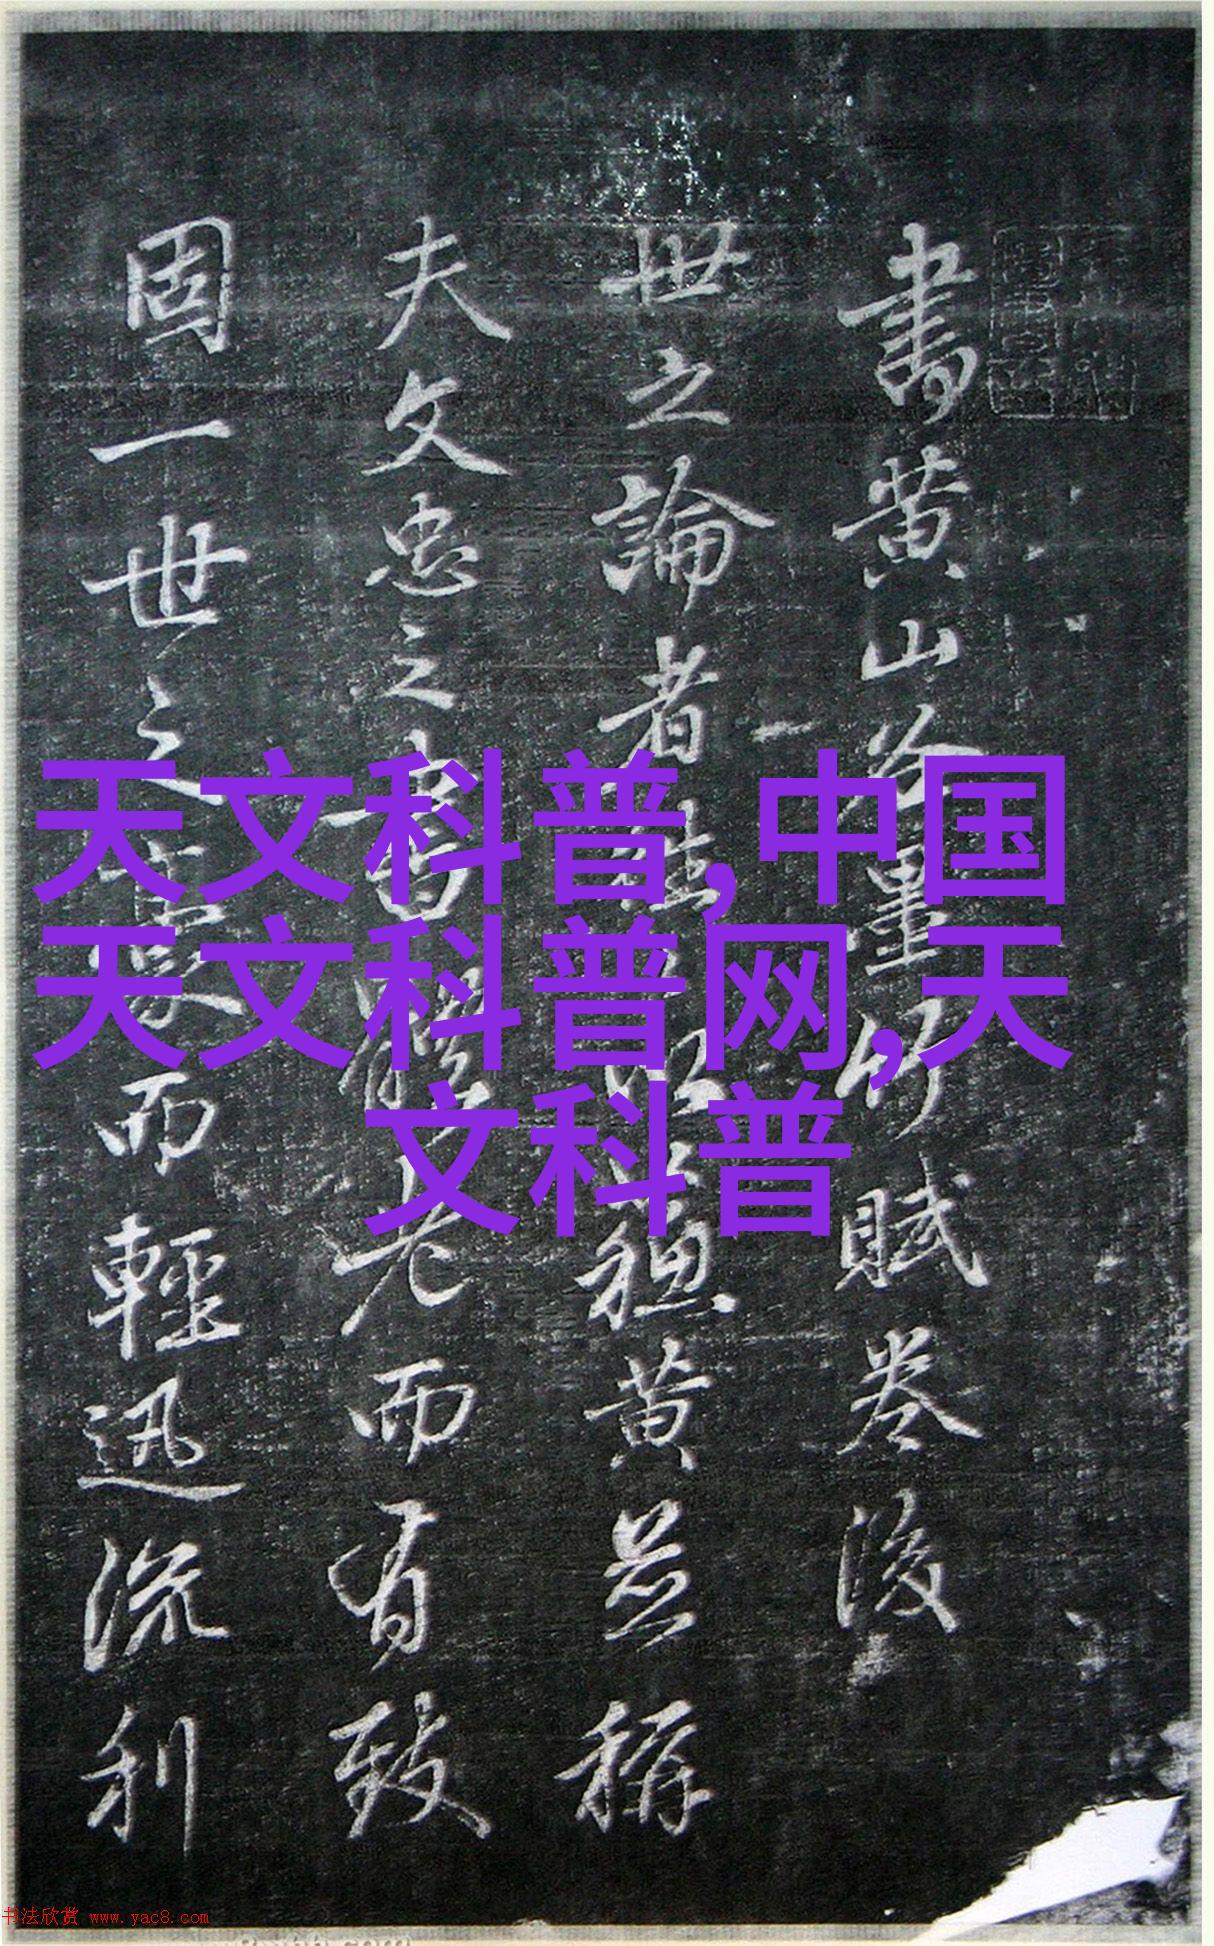 書黄山谷墨竹賦卷後
世之論者黄並稱
夫文忠之書體老而有致
固一世之而輕迅流利
天文科普,中国
天文科普网,天
文科普
书法欣赏 www.yac8.com